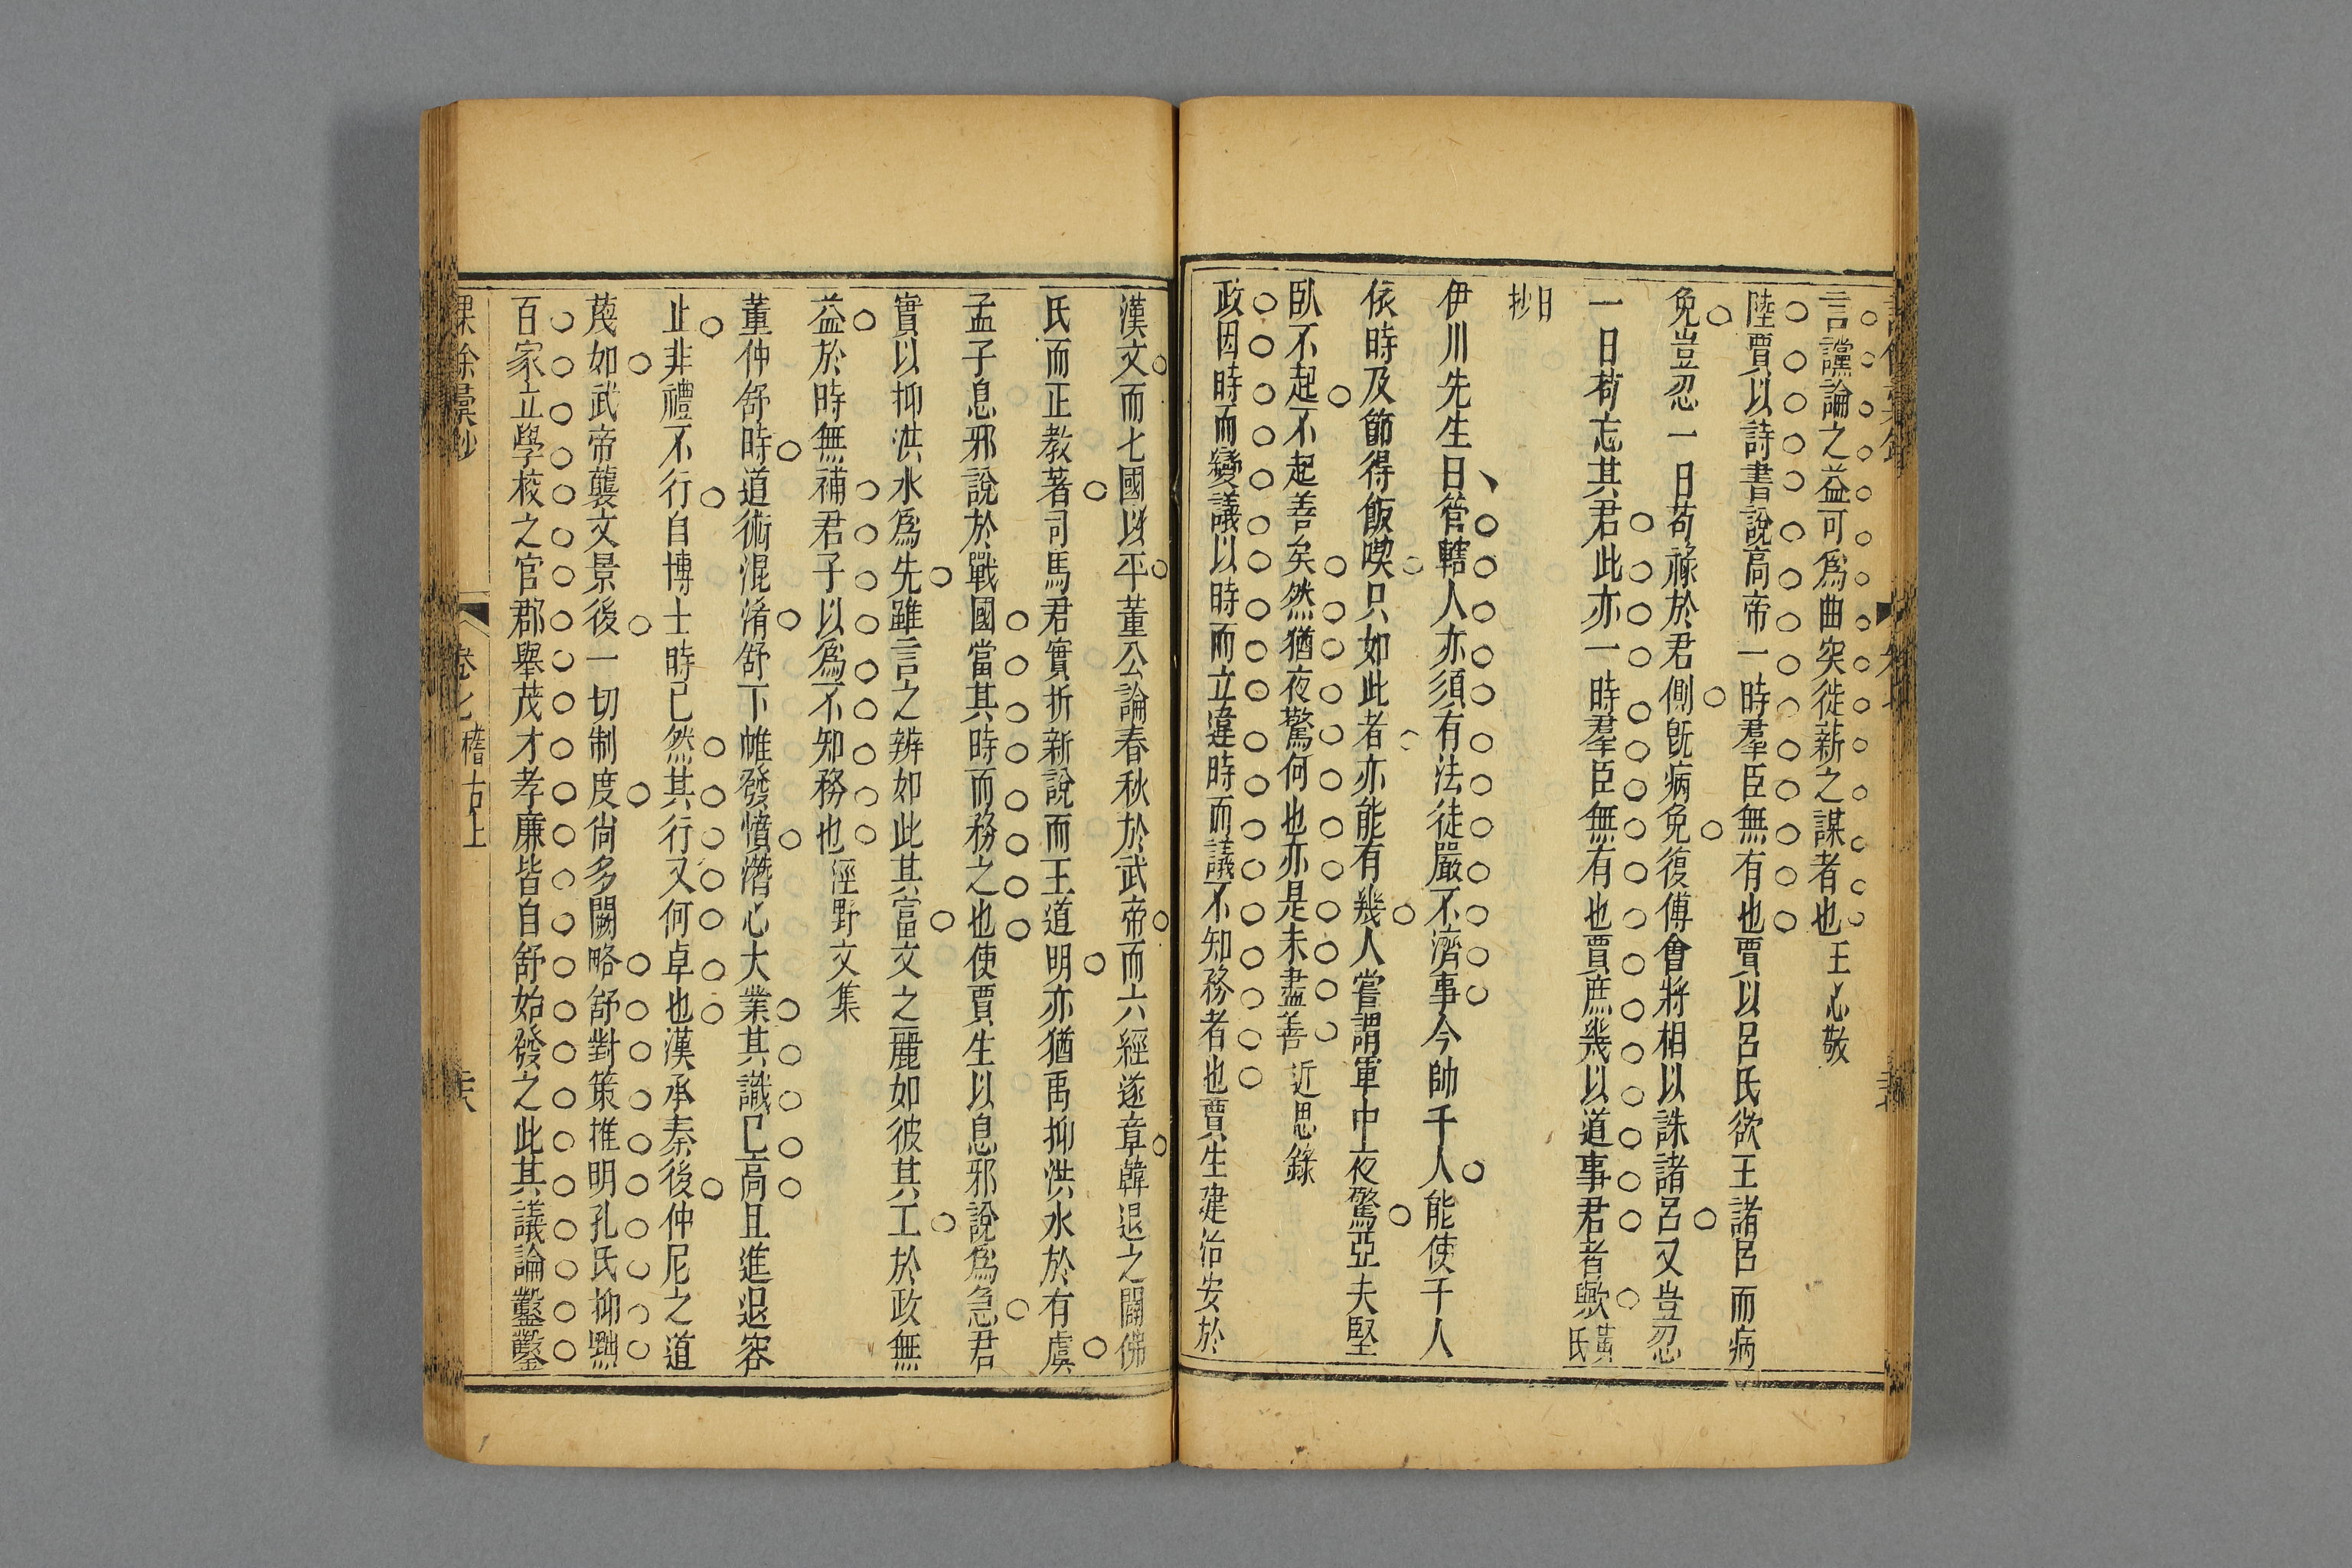 言讜論之益可爲曲突徙薪之謀者也王心敬
陸賈以詩書說高帝一時羣臣無有也賈以呂氏欲王諸呂而病
免豈忍一日苟祿於君側旣病免復傅會將相以誅諸呂又豈忍
一日苟忘其君此亦一時羣臣無有也賈庶幾以道事君者歟黃氏
日抄
伊川先生曰管轄人亦須有法徒嚴不濟事今帥千人能使千人
依時及節得飯喫只如此者亦能有幾人嘗謂軍中夜驚亞夫堅
臥不起不起善矣然猶夜驚何也亦是未盡善 近思錄
政因時而變議以時而立違時而議不知務者也賈生建治安於
漢文而七國以平董公論春秋於武帝而六經遂章韓退之闢佛
氏而正教著司馬君實折新說而王道明亦猶禹抑洪水於有虞
孟子息邪說於戰國當其時而務之也使賈生以息邪說爲急君
實以抑洪水爲先雖言之辨如此其富文之麗如彼其工於政無
益於時無補君子以爲不知務也 涇野文集
董仲舒時道術混淆舒下帷發憤潛心大業其識已高且進退容
止非禮不行自博士時已然其行又何卓也漢承秦後仲尼之道
蔑如武帝襲文景後一切制度尙多闕略舒對策推明孔氏抑黜
百家立學校之官郡舉茂才孝廉皆自舒始發之此其議論鑿鑿
課餘彙鈔
卷七
稽古上